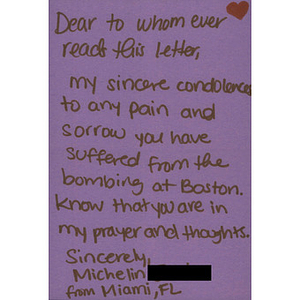 Dear to whom ever
reads this Letter,
my sincere condolences
to any pain and
sorrow you have
suffered from the
bombing at Boston.
Know that you are in
my prayer and thoughts.
Sincerely,
Michelin
from Miami, FL